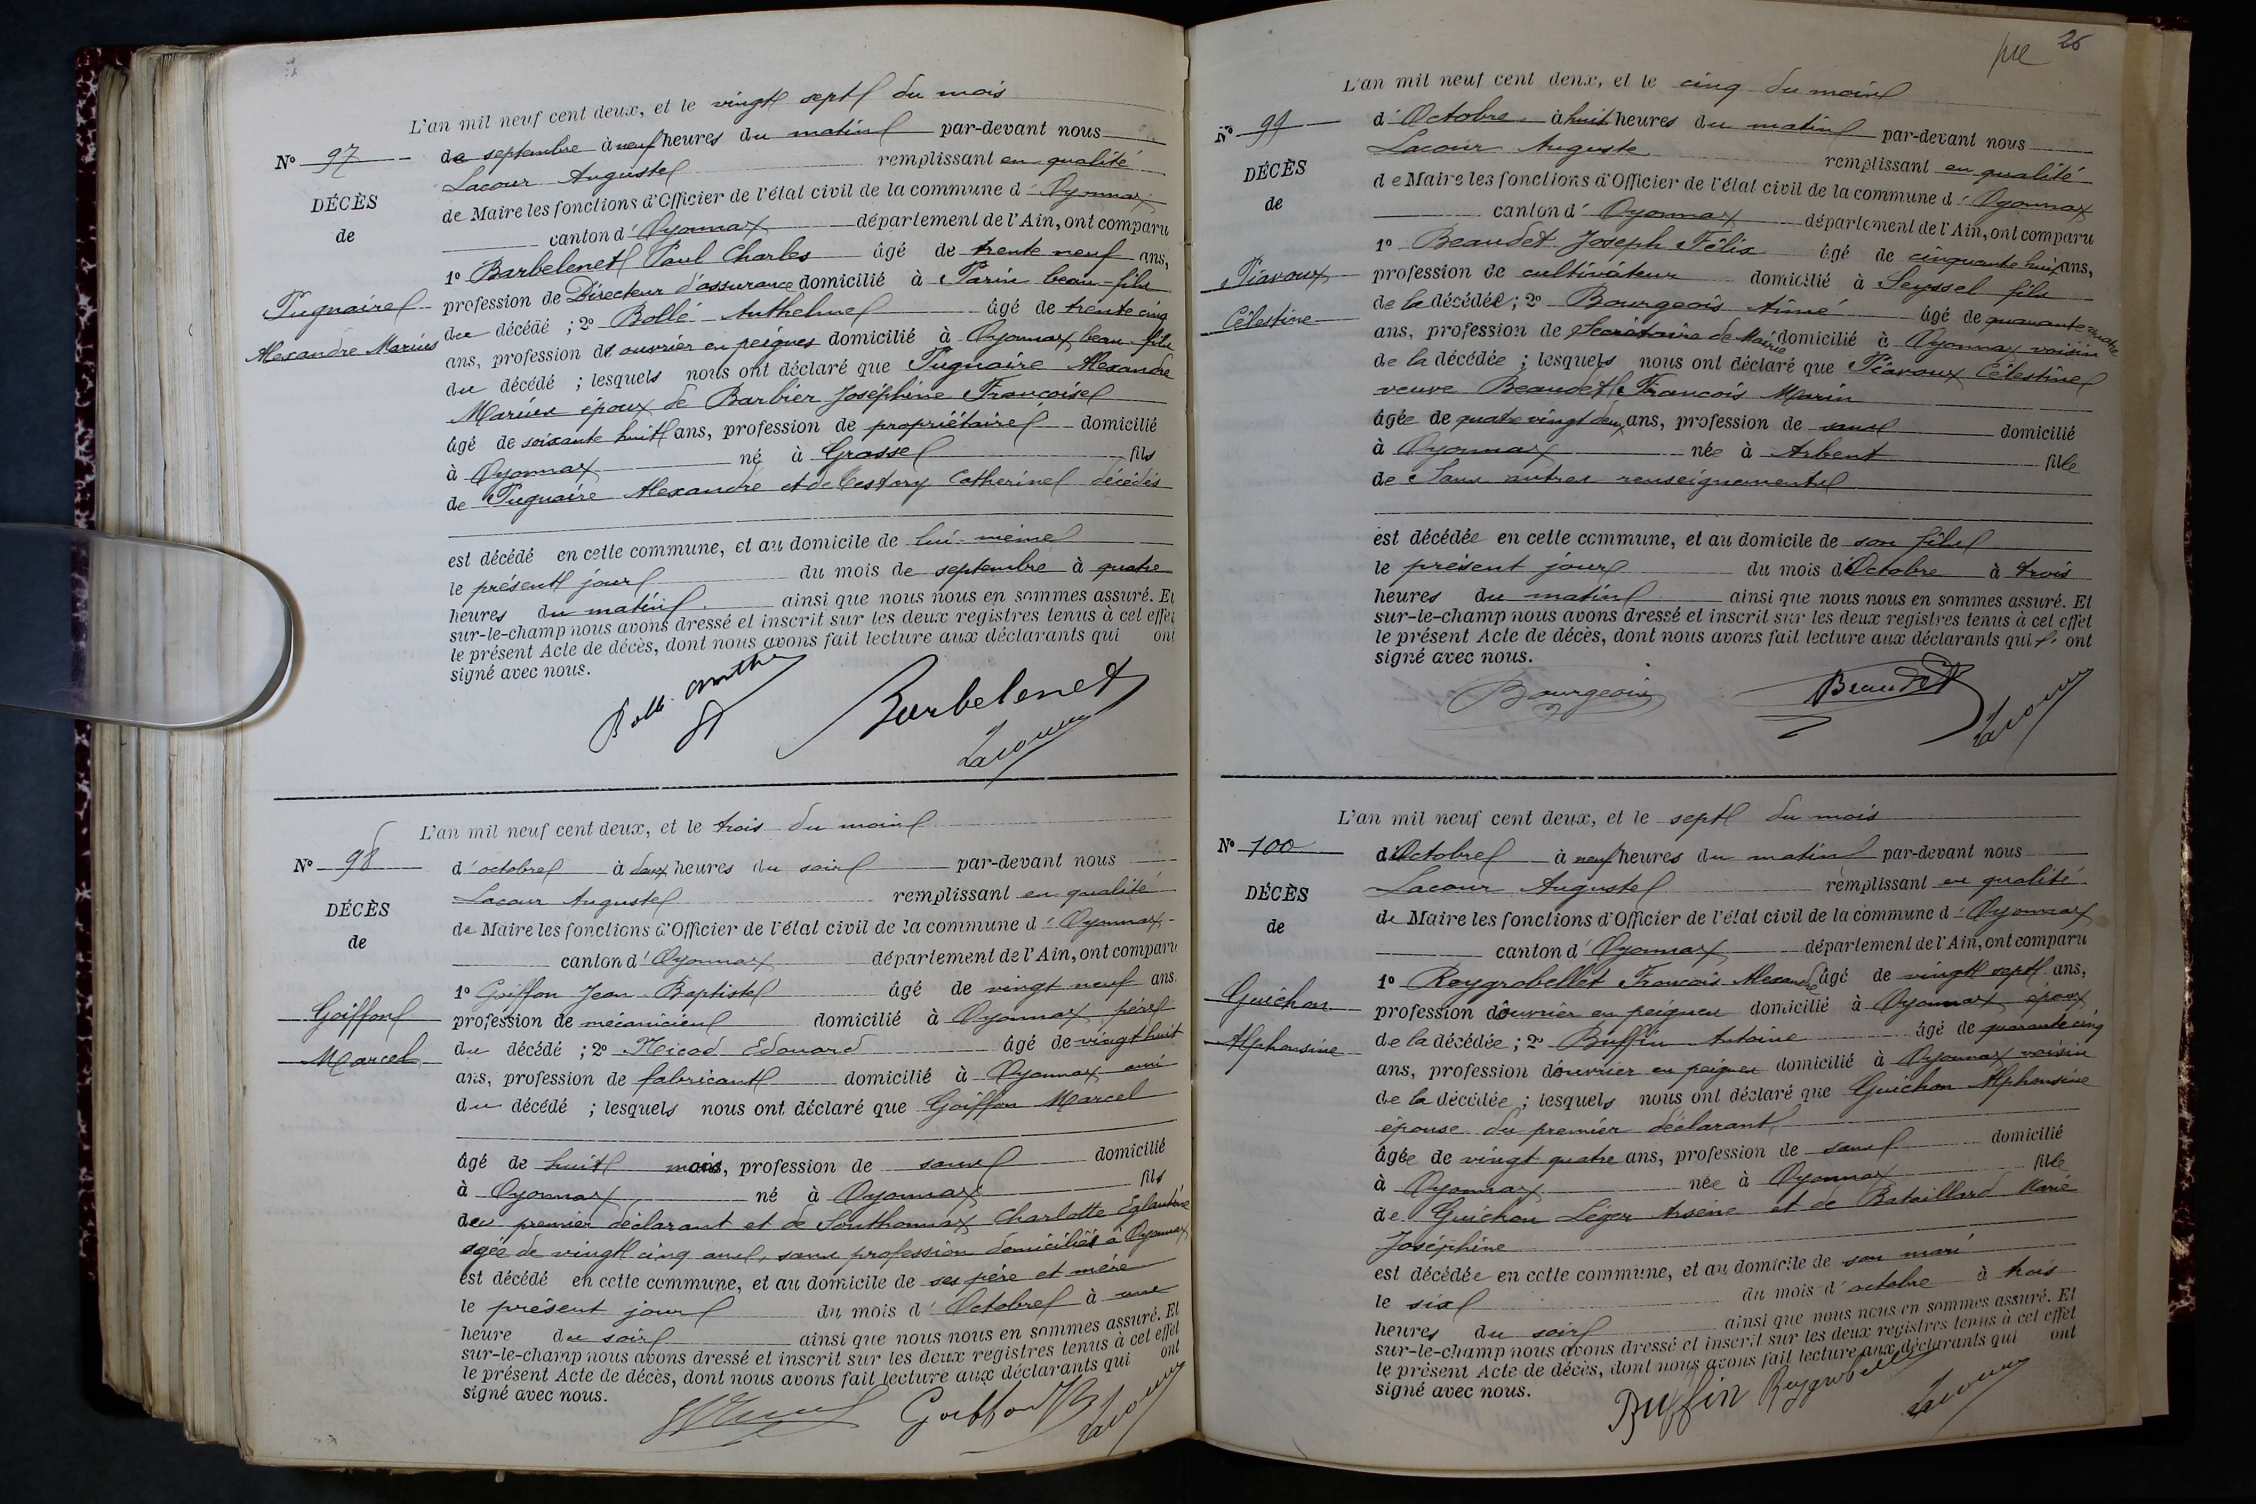 L'an mil neuf cent deux, et le vingt sept du mois
N° 97
de septembre à neuf heures du matin par-devant nous
DÉCÈS
Lacour Auguste remplissant en qualité
de
de Maire les fonctions d'Officier de l'état civil de la commune d'Oyonnax
canton d'Oyonnax département de l'Ain, ont comparu
1° Barbelenet Paul Charles âgé de trente neuf ans,
Pugnaire
profession de Directeur d'assurance domicilié à Paris beau-fils
Alexandre Marius
du décédé ; 2° Bollé Anthelme âgé de trente cinq
ans, profession de ouvrier en peignes domicilié à Oyonnax beau-fils
du décédé ; lesquels nous ont déclaré que Pugnaire Alexandre
Marius époux de Barbier Joséphine Françoise
âgé de soixante huit ans, profession de propriétaire domicilié
à Oyonnax né à Grasse fils
de Pugnaire Alexandre et de Testory Catherine décédés
est décédé en cette commune, et au domicile de lui-même
le présent jour du mois de septembre à quatre
heures du matin ainsi que nous nous en sommes assuré. Et
sur-le-champ nous avons dressé et inscrit sur les deux registres tenus à cet effet
le présent Acte de décès, dont nous avons fait lecture aux déclarants qui ont
signé avec nous.
Barbelenet
Lacour
L'an mil neuf cent deux, et le trois du mois
N° 98
d'octobre à deux heures du soir par-devant nous
DÉCÈS
Lacour Auguste remplissant en qualité
de
de Maire les fonctions d'Officier de l'état civil de la commune d'Oyonnax
canton d'Oyonnax département de l'Ain, ont comparu
1° Goiffon Jean Baptiste âgé de vingt neuf ans
Goiffon
profession de mécanicien domicilié à Oyonnax père
Marcel
du décédé ; 2° Nicod Edouard âgé de vingt huit
ans, profession de fabricant domicilié à Oyonnax ami
du décédé ; lesquels nous ont déclaré que Goiffon Marcel
âgé de huit mois, profession de sans domicilié
à Oyonnax né à Oyonnax fils
du premier déclarant et de Southonnax Charlotte Eglantine
agée de vingt cinq ans, sans profession domiciliés à Oyonnax
est décédé en cette commune, et au domicile de ses père et mère
le présent jour du mois d'Octobre à une
heure du soir ainsi que nous nous en sommes assuré. Et
sur-le-champ nous avons dressé et inscrit sur les deux registres tenus à cet effet
le présent Acte de décès, dont nous avons fait lecture aux déclarants qui ont
signé avec nous.
Goiffon
Lacour
26
L'an mil neuf cent deux, et le cinq du mois
N° 99
d'Octobre à huit heures du matin par-devant nous
DÉCÈS
Lacour Auguste remplissant en qualité
de
de Maire les fonctions d'Officier de l'état civil de la commune d'Oyonnax
canton d'Oyonnax département de l'Ain, ont comparu
1° Beaudet Joseph Félix âgé de cinquante huit ans,
Piavoux
profession de cultivateur domicilié à Seyssel fils
Célestine
de la décédée ; 2° Bourgeois Aimé âgé de quarante quatre
ans, profession de Secrétaire de Mairie domicilié à Oyonnax voisin
de la décédée ; lesquels nous ont déclaré que Piavoux Célestine
veuve Beaudet François Marin
âgée de quatre vingt deux ans, profession de sans domicilié
à Oyonnax née à Arbent fille
de Sans autres renseignements
est décédée en cette commune, et au domicile de son fils
le présent jour du mois d'Octobre à trois
heures du matin ainsi que nous nous en sommes assuré. Et
sur-le-champ nous avons dressé et inscrit sur les deux registres tenus à cet effet
le présent Acte de décès, dont nous avons fait lecture aux déclarants qui ont
signé avec nous.
Bourgeois Beaudet
Lacour
L'an mil neuf cent deux, et le sept du mois
N° 100
d'Octobre à neuf heures du matin par-devant nous
DÉCÈS
Lacour Auguste remplissant en qualité
de
de Maire les fonctions d'Officier de l'état civil de la commune d'Oyonnax
canton d'Oyonnax département de l'Ain, ont comparu
1° Reygrobellet François Alexandre âgé de vingt sept ans,
Guichon
profession d'ouvrier en peignes domicilié à Oyonnax époux
Alphonsine
de la décédée ; 2° Buffin Antoine âgé de quarante cinq
ans, profession d'ouvrier en peignes domicilié à Oyonnax voisin
de la décédée ; lesquels nous ont déclaré que Guichon Alphonsine
épouse du premier déclarant
âgée de vingt quatre ans, profession de sans domicilié
à Oyonnax née à Oyonnax fille
de Guichon Léger Arsène et de Bataillard Marie
Joséphine
est décédée en cette commune, et au domicile de son mari
le six du mois d'octobre à trois
heures du soir ainsi que nous nous en sommes assuré. Et
sur-le-champ nous avons dressé et inscrit sur les deux registres tenus à cet effet
le présent Acte de décès, dont nous avons fait lecture aux déclarants qui ont
signé avec nous.
Buffin Reygrobellet
Lacour